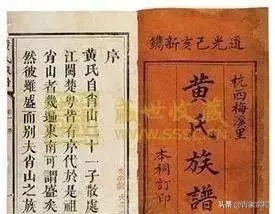 道光己亥新鐫
杭西梅溪里
黃氏族譜
本祠訂印
序
黃氏自肖山二十一子散處
江閩楚粵皆有序代於是祖
肖山者幾遍東南可謂盛矣
然彼雖盛而別夫肖山之族
盛世收藏